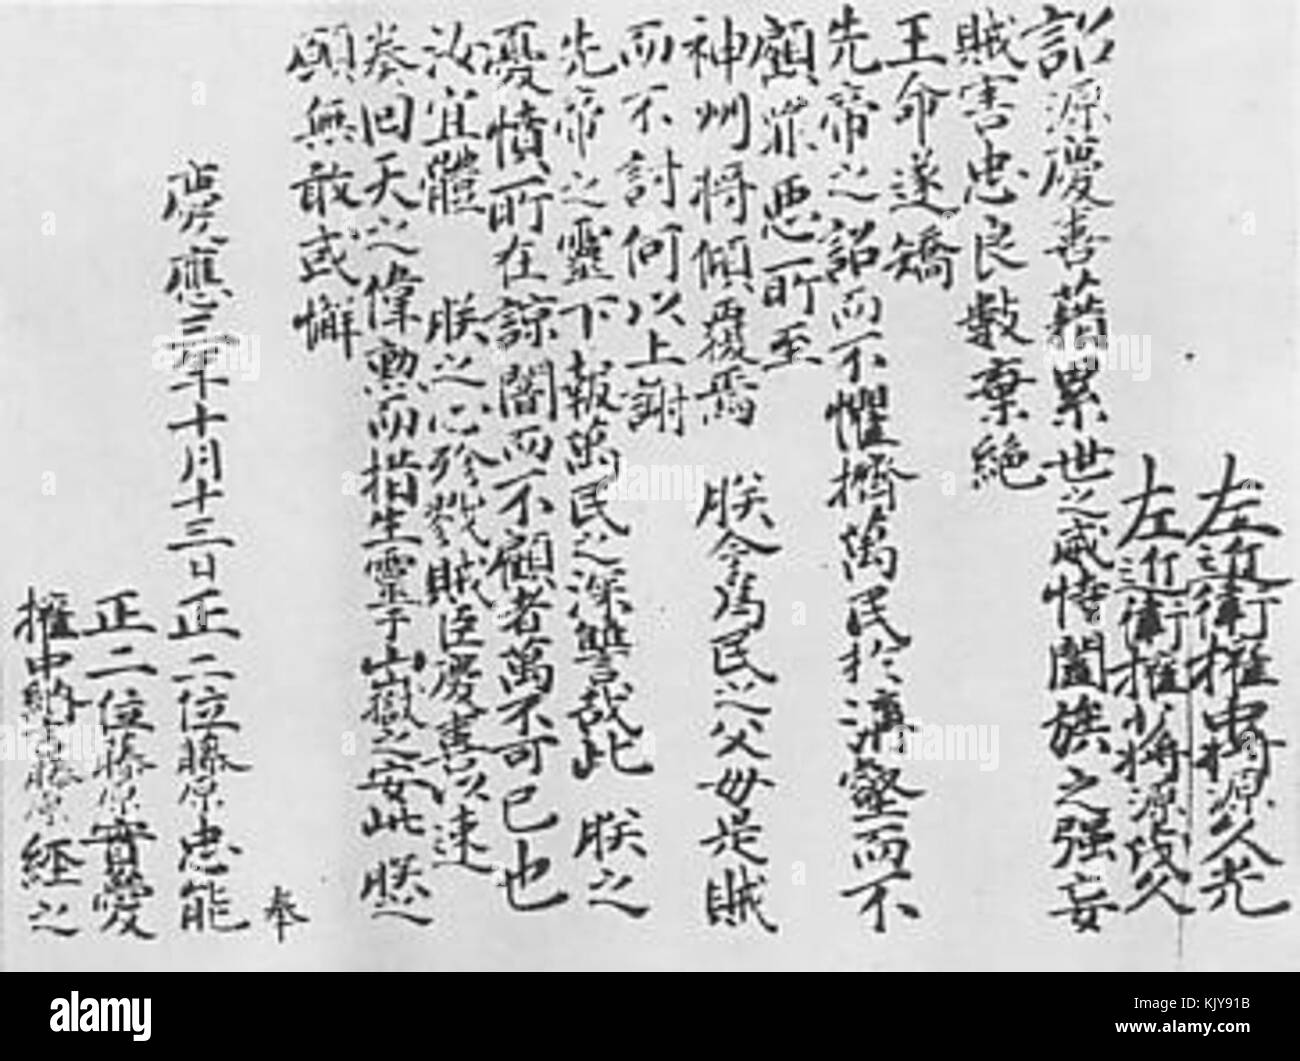 左近衛権中将源久光
左近衛権少将源茂久
詔源慶喜藉累世之威恃闔族之强妄
賊害忠良數棄絶
王命遂矯
先帝之詔而不懼擠萬民於溝壑而不
顧罪悪所至
神州将傾覆焉 朕今為民之父毋是賊
而不討何以上謝
先帝之靈下報萬民之深讐哉此 朕之
憂憤所在諒闇而不顧者萬不可已也
汝宜體 朕之心殄戮賊臣慶喜以速
奏回天之偉勲而措生靈于山嶽之安此 朕之
願無敢或懈
奉
慶應三年十月十三日 正二位藤原忠能
正二位藤原實愛
権中納言藤原経之
alamy
alamy
www.alamy.com
KJY91B